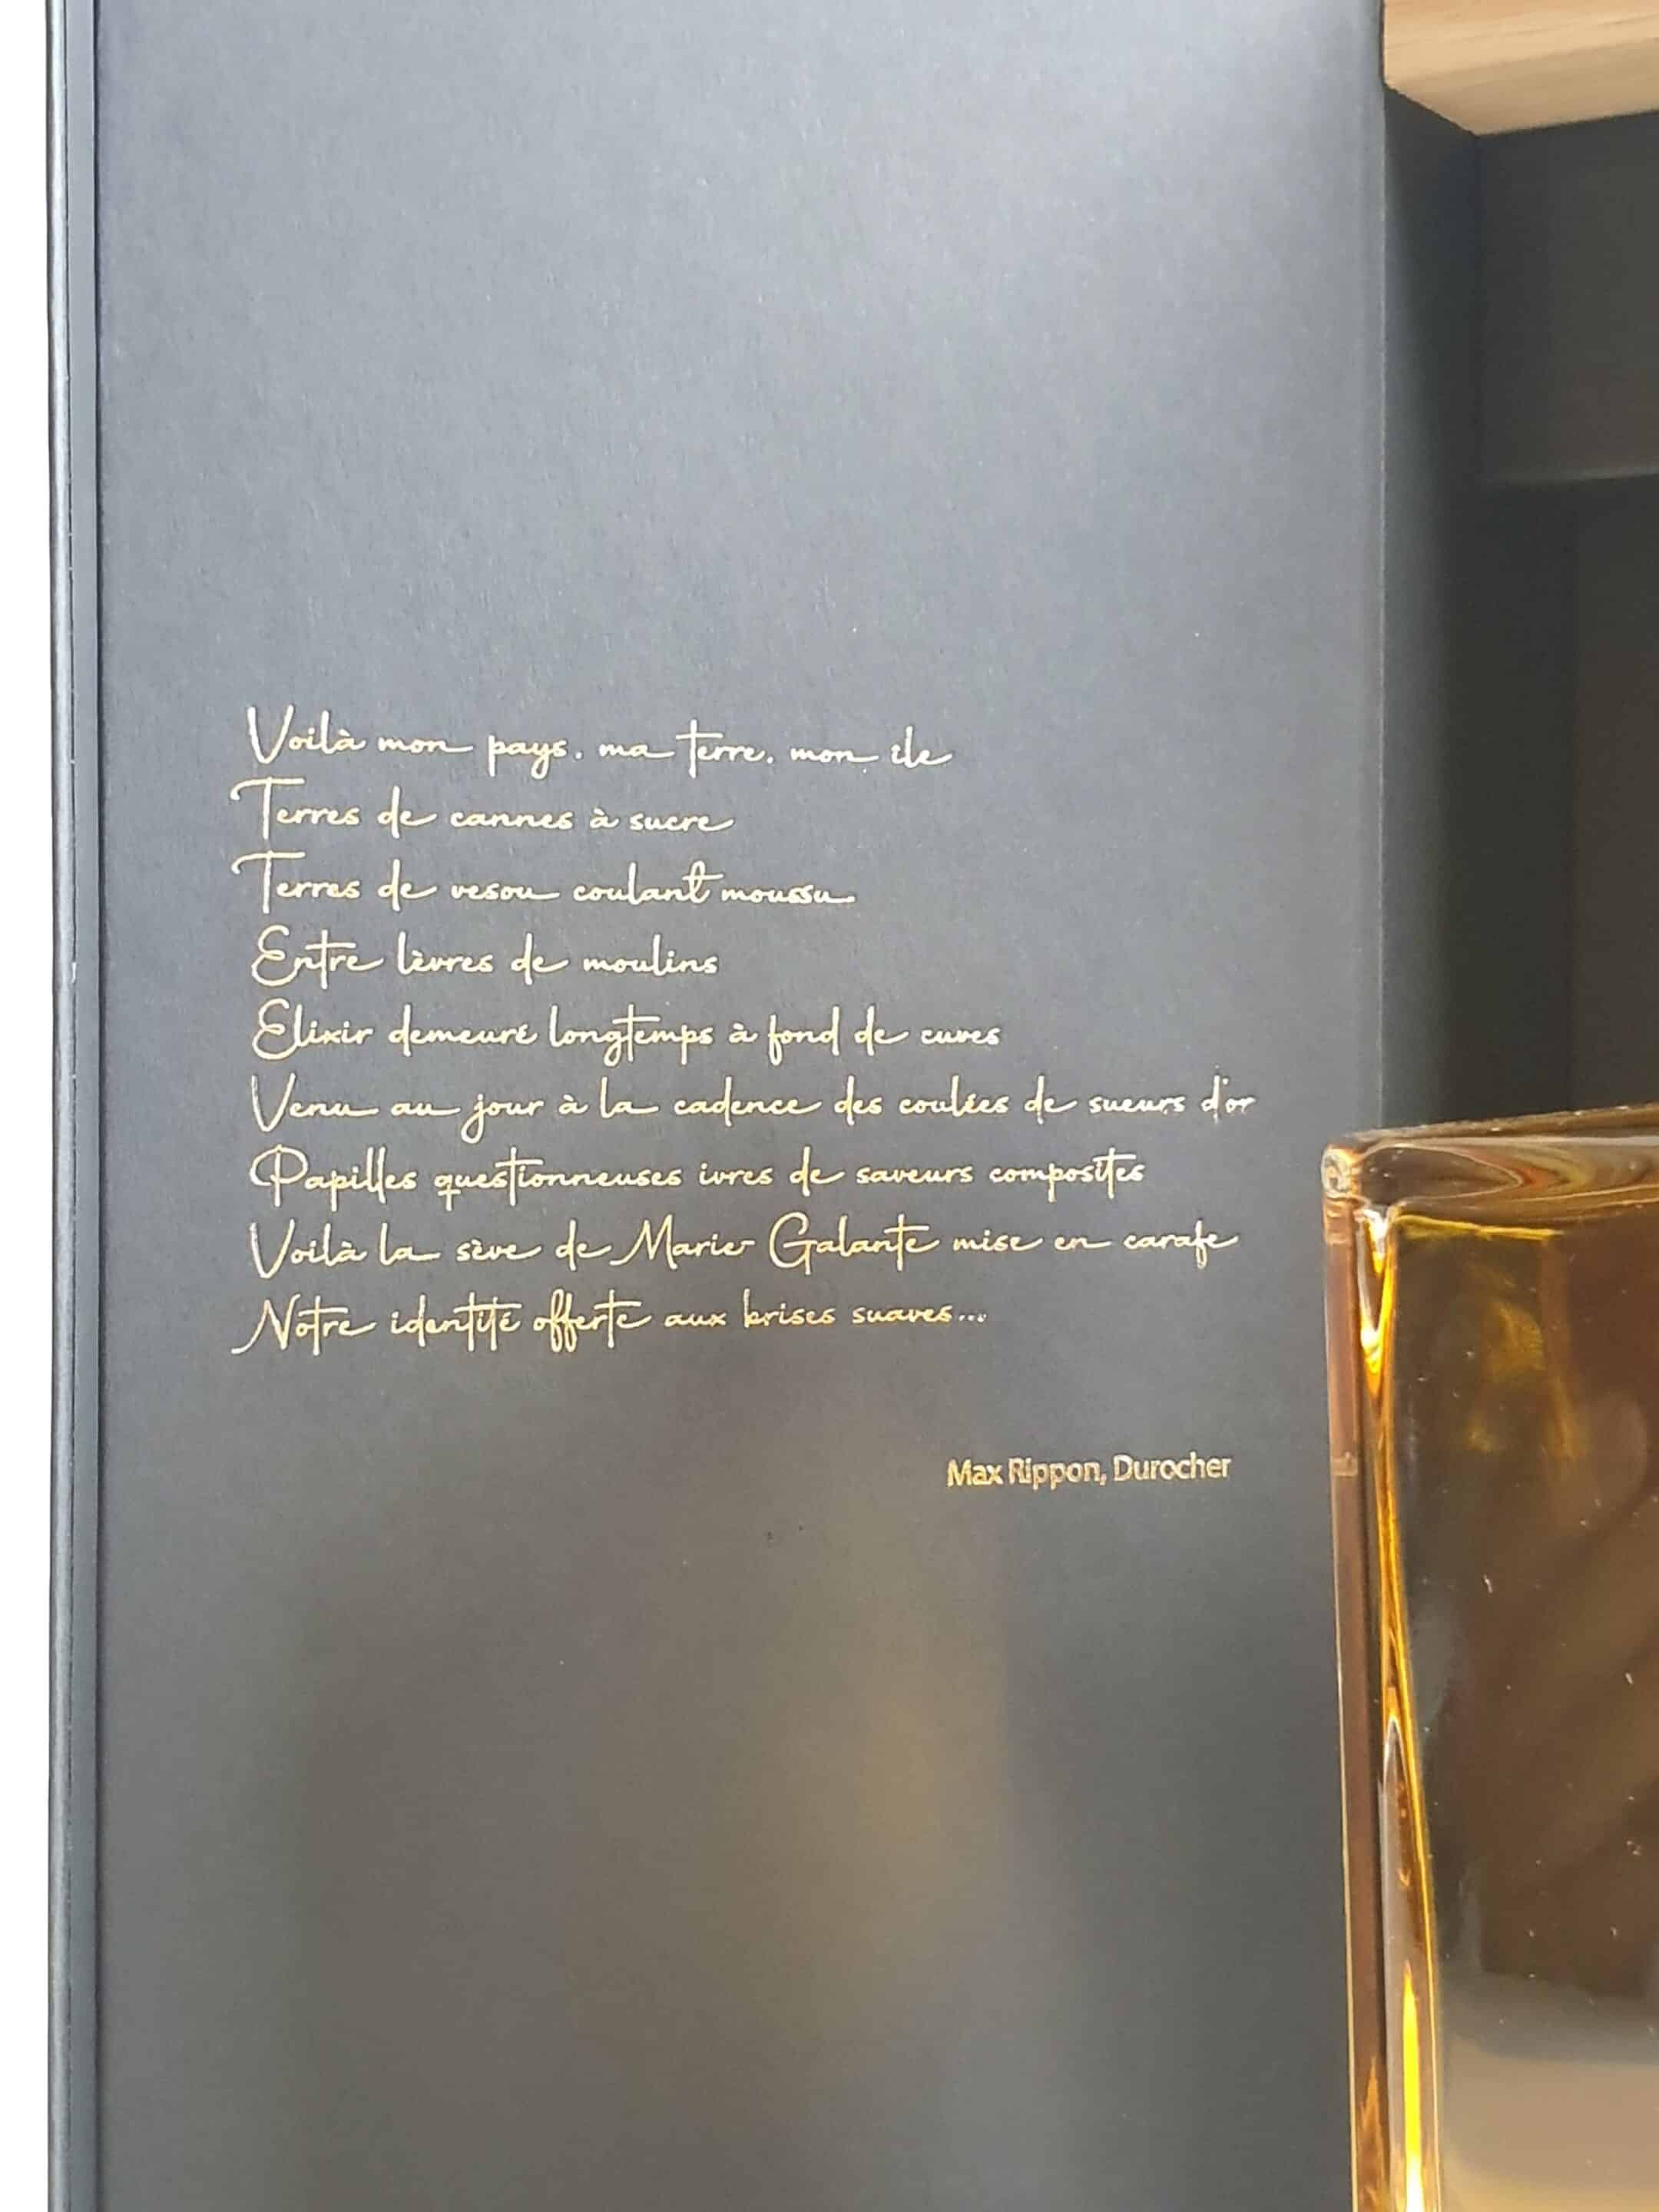 Voilà mon pays, ma terre, mon ile
Terres de cannes à sucre
Terres de vesou coulant moussu
Entre lèvres de moulins
Elixir demeuré longtemps à fond de cuves
Venu au jour à la cadence des coulées de sueurs d'or
Papilles questionneuses ivres de saveurs composites
Voilà la sève de Marie-Galante mise en carafe
Notre identité offerte aux brises suaves...
Max Rippon, Durocher